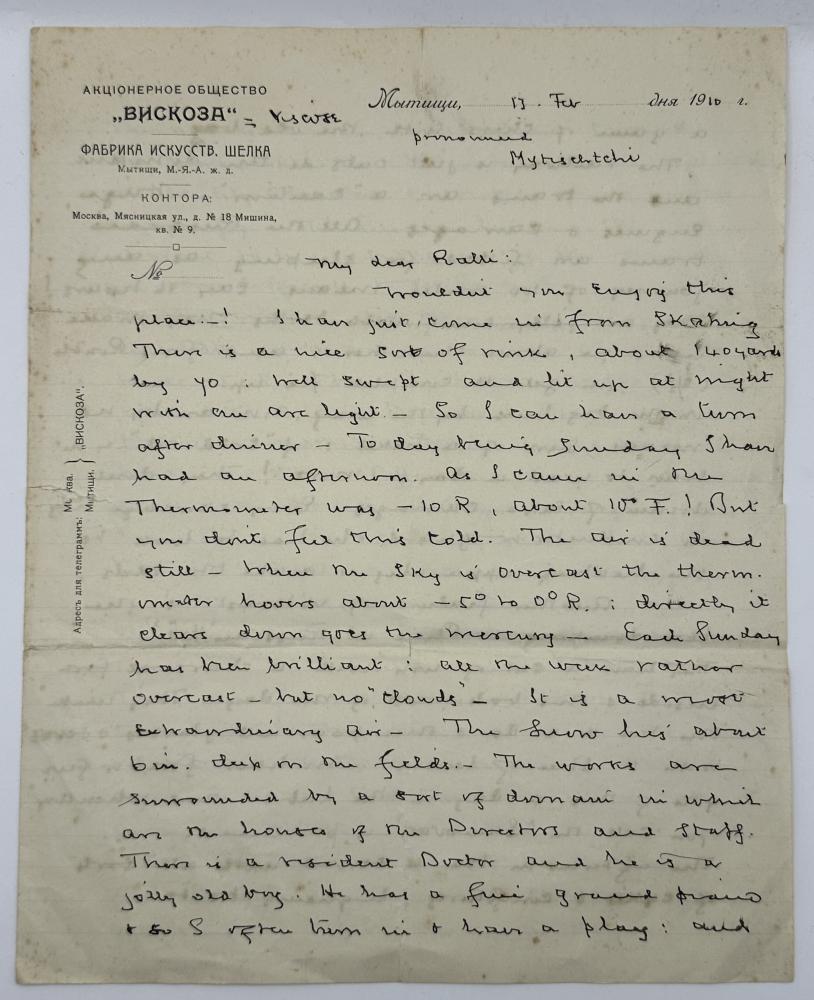 АКЦІОНЕРНОЕ ОБЩЕСТВО
„ВИСКОЗА“ = Viscose
ФАБРИКА ИСКУССТВ. ШЕЛКА
Мытищи, М.-Я.-А. ж. д.
КОНТОРА:
Москва, Мясницкая ул., д. № 18 Мишина,
кв. № 9.
№
Мытищи, 13. Feb дня 1910 г.
pronounced
Mytischtchi
Адресъ для телеграммъ: Москва. Мытищи. } „ВИСКОЗА“.
My dear Ralli:
Wouldnt you enjoy this
place.-! I have just come in from Skating
There is a nice sort of rink, about 140 yards
by 70: well swept and lit up at night
with one arc light. - So I can have a turn
after dinner - To day being Sunday I have
had an afternoon. As I came in the
Thermometer was -10 R, about 10° F.! But
you dont feel this cold. The air is dead
still - When the sky is overcast the therm.
ometer hovers about -5° to 0° R.: directly it
clears down goes the mercury - Each Sunday
has been brilliant: all the week rather
overcast - but no "clouds" - It is a most
extraordinary air - The Snow lies about
6 in. deep on the fields. - The works are
surrounded by a sort of domain in which
are the houses of the Directors and Staff.
There is a resident Doctor and he is a
jolly old boy. He has a fine grand piano
& so I often turn in & have a play: and